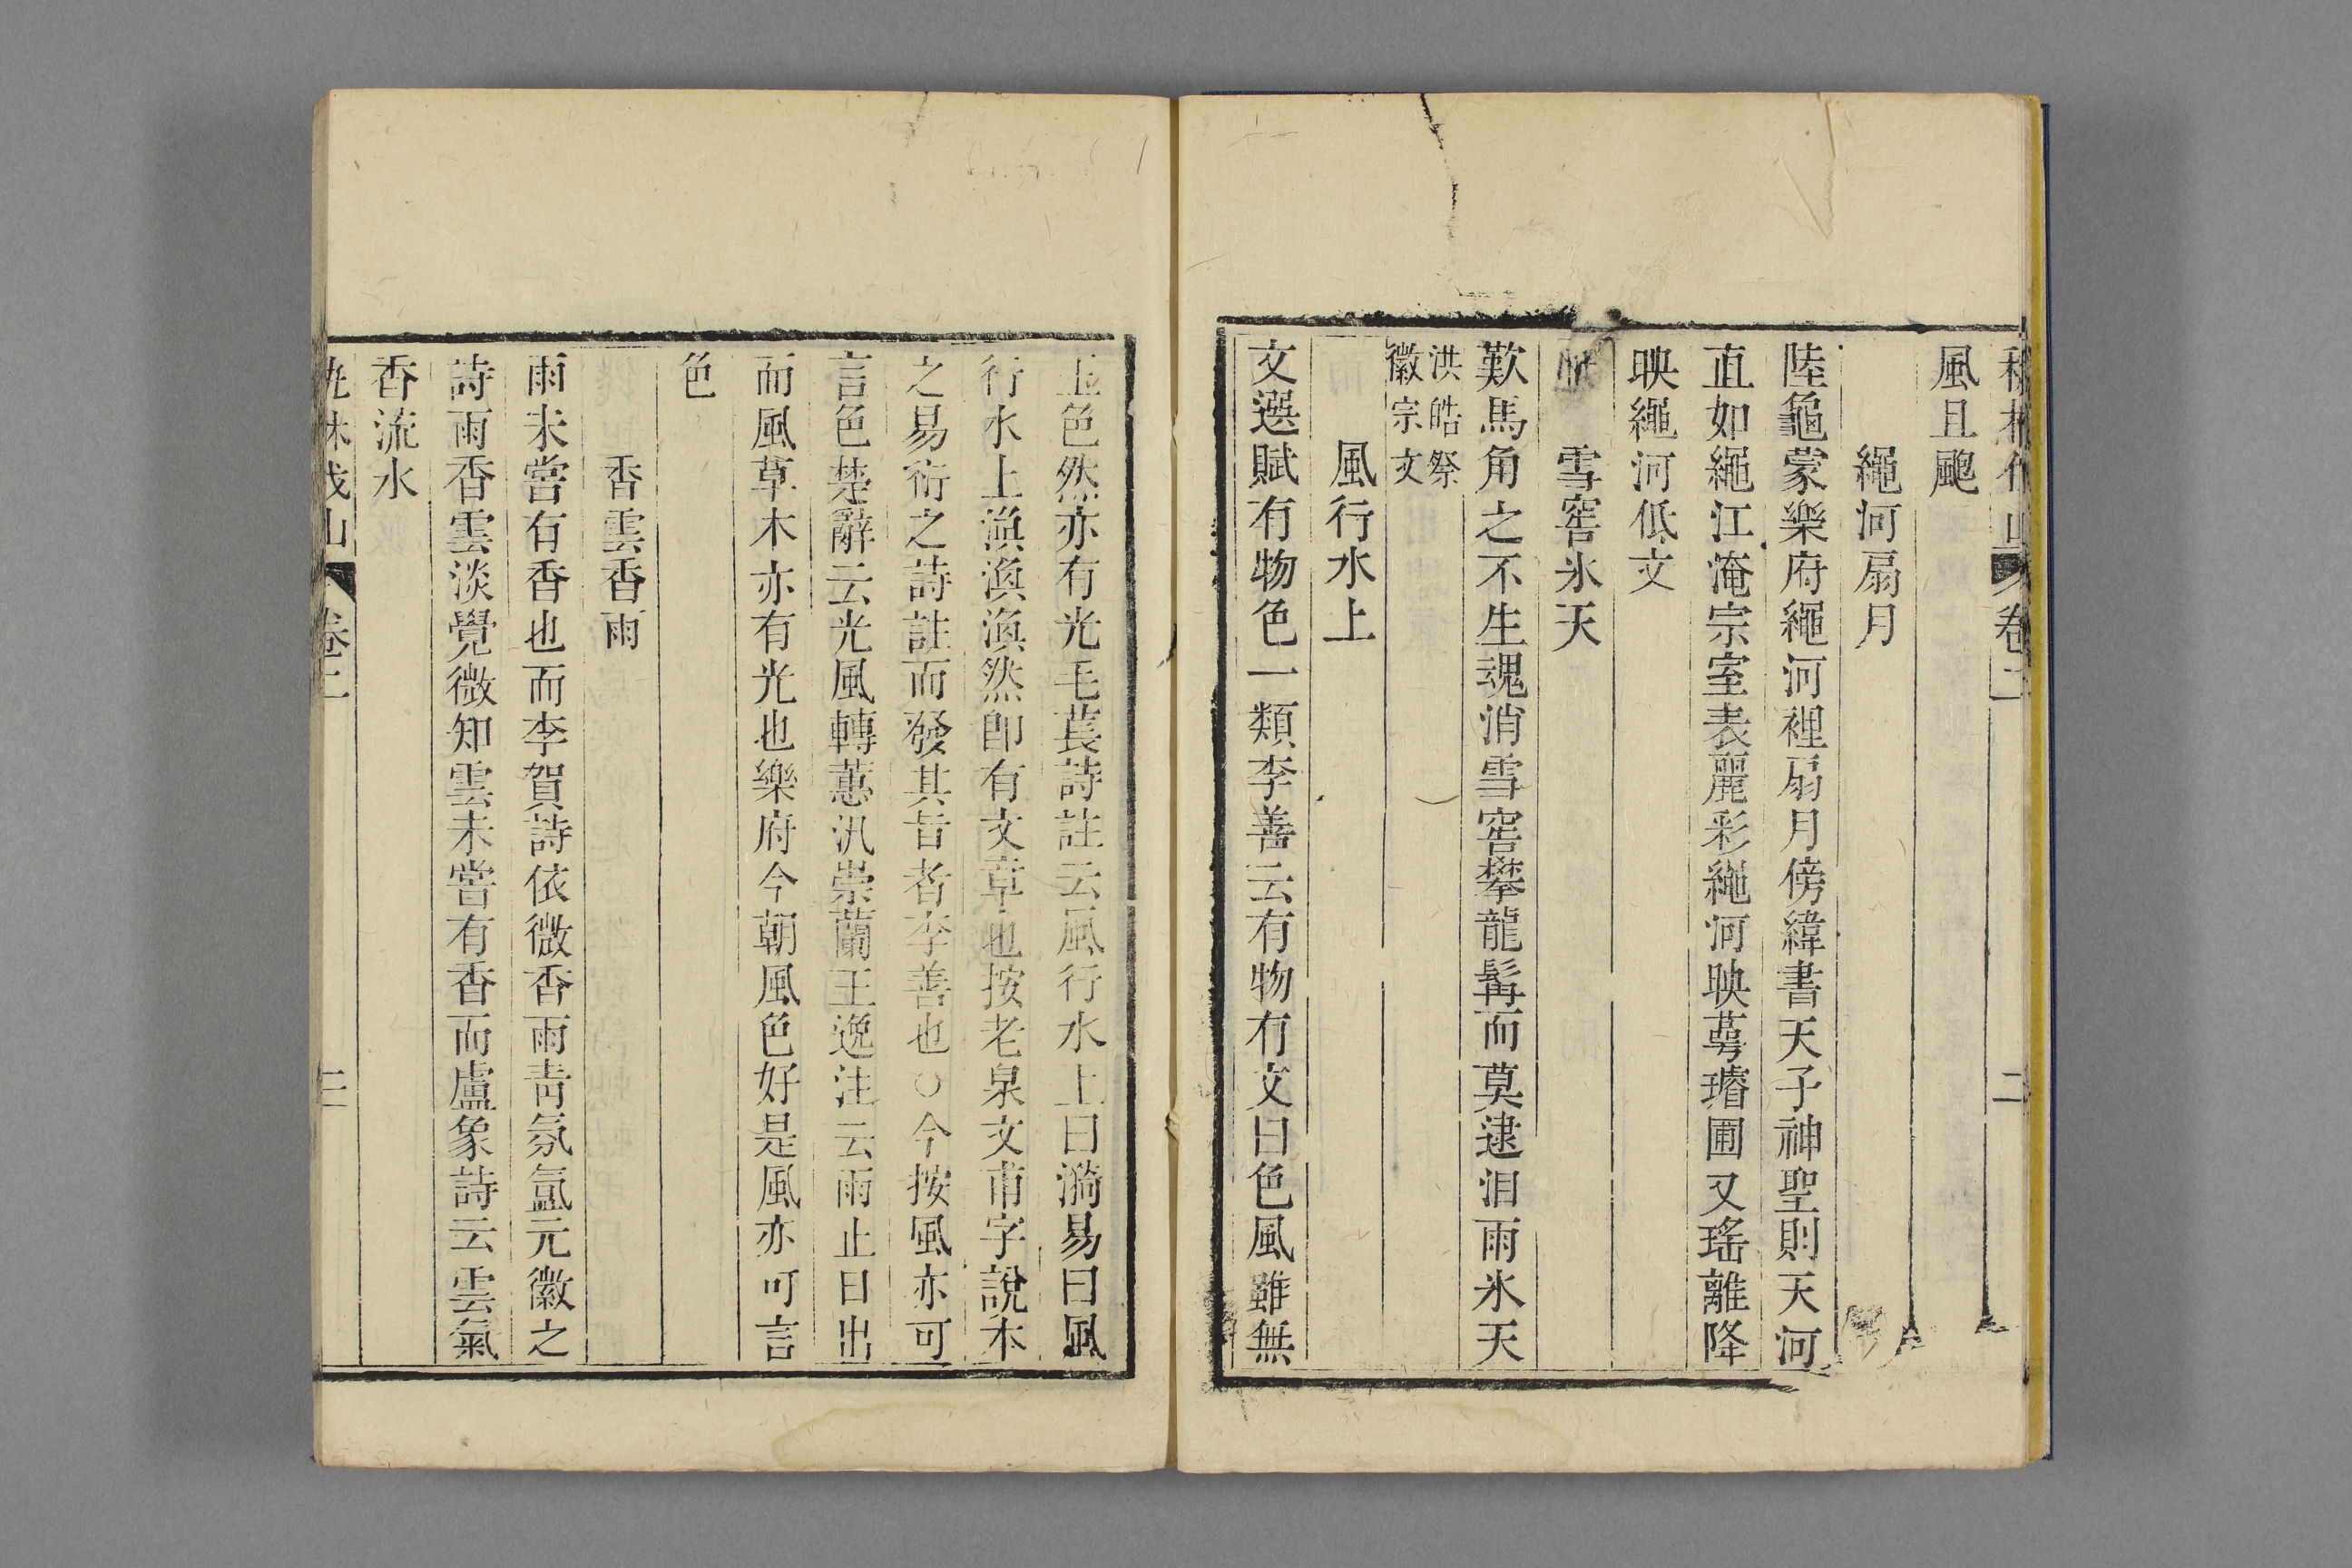 卷二
二
風且颸
繩河扇月
陸龜蒙樂府繩河裡扇月傍緯書天子神聖則天河
直如繩江淹宗室表麗彩繩河映萼璿圃又瑤離降
映繩河低文
雪窖氷天
歎馬角之不生魂消雪窖攀龍髯而莫逮泪雨氷天
洪皓祭
徽宗文
風行水上
文選賦有物色一類李善云有物有文曰色風雖無
正色然亦有光毛萇詩註云風行水上曰漪易曰風
行水上渙渙渙然卽有文章也按老泉文甫字說本
之易衍之詩註而發其旨者李善也○今按風亦可
言色楚辭云光風轉蕙汎崇蘭王逸注云雨止日出
而風草木亦有光也樂府今朝風色好是風亦可言
色
香雲香雨
雨未嘗有香也而李賀詩依微香雨靑氛氳元徽之
詩雨香雲淡覺微知雲未嘗有香而盧象詩云雲氣
香流水
卷二
三